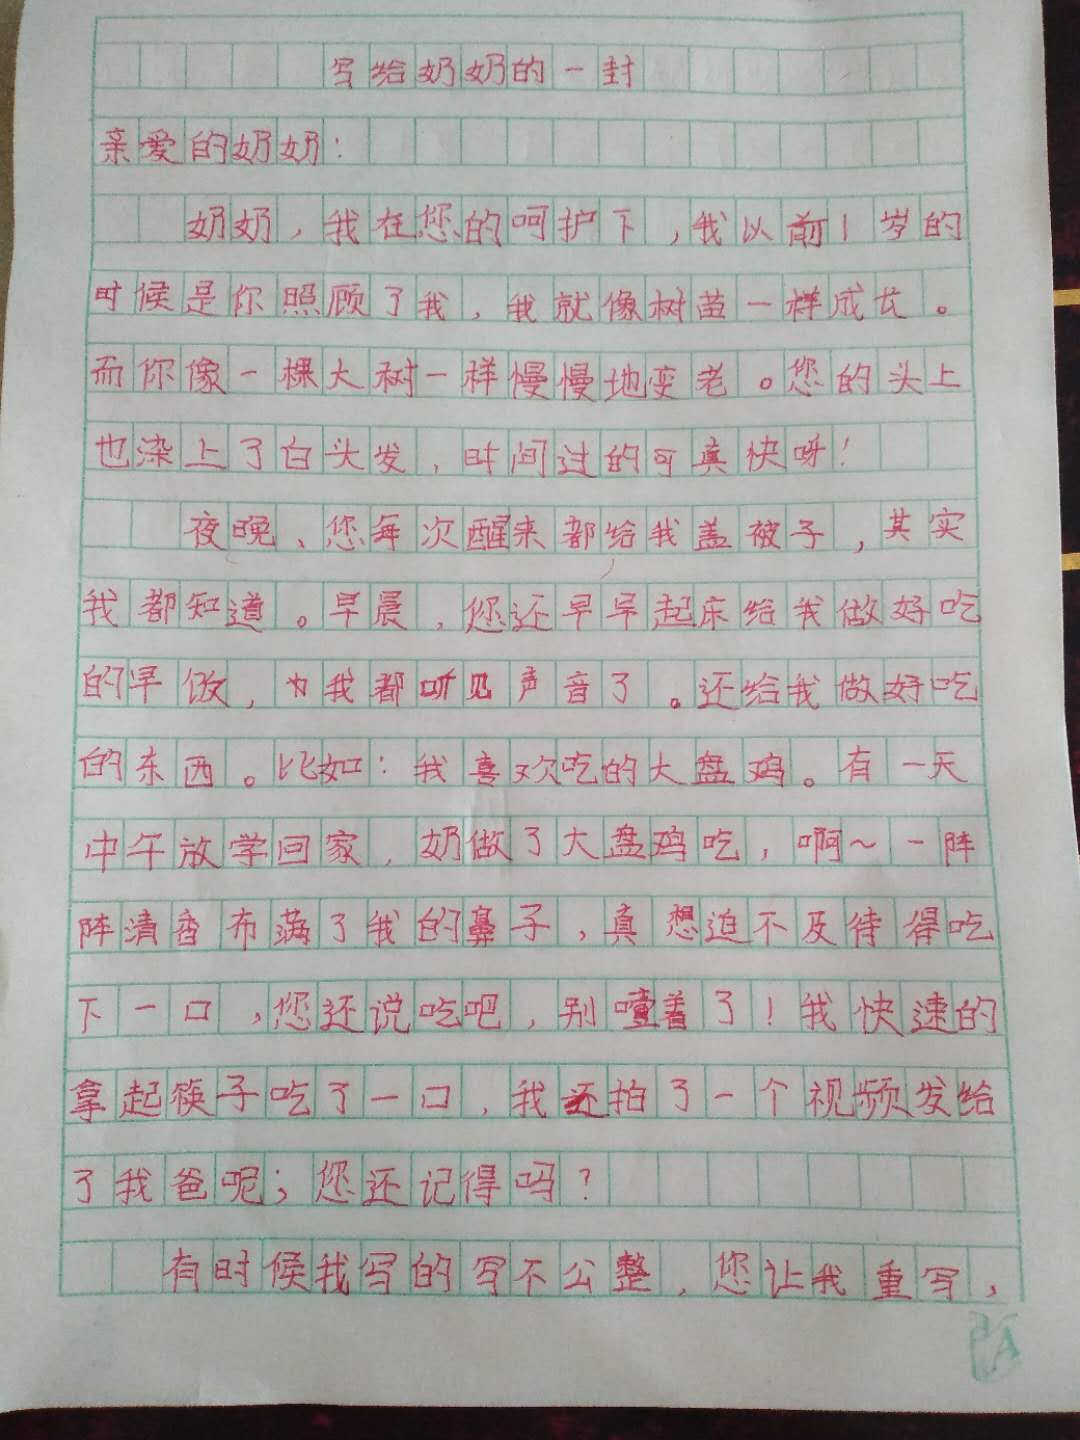 写给奶奶的一封
亲爱的奶奶:
奶奶,我在您的呵护下,我以前1岁的
时候是你照顾了我,我就像树苗一样成长。
而你像一棵大树一样慢慢地变老。您的头上
也染上了白头发,时间过的可真快呀!
夜晚、您每次醒来都给我盖被子,其实
我都知道。早晨,您还早早起床给我做好吃
的早饭,我都听见声音了。还给我做好吃
的东西。比如:我喜欢吃的大盘鸡。有一天
中午放学回家,奶做了大盘鸡吃,啊~一阵
阵清香布满了我的鼻子,真想迫不及待得吃
下一口,您还说吃吧,别噎着了!我快速的
拿起筷子吃了一口,我还拍了一个视频发给
了我爸呢;您还记得吗?
有时候我写的写不公整,您让我重写,